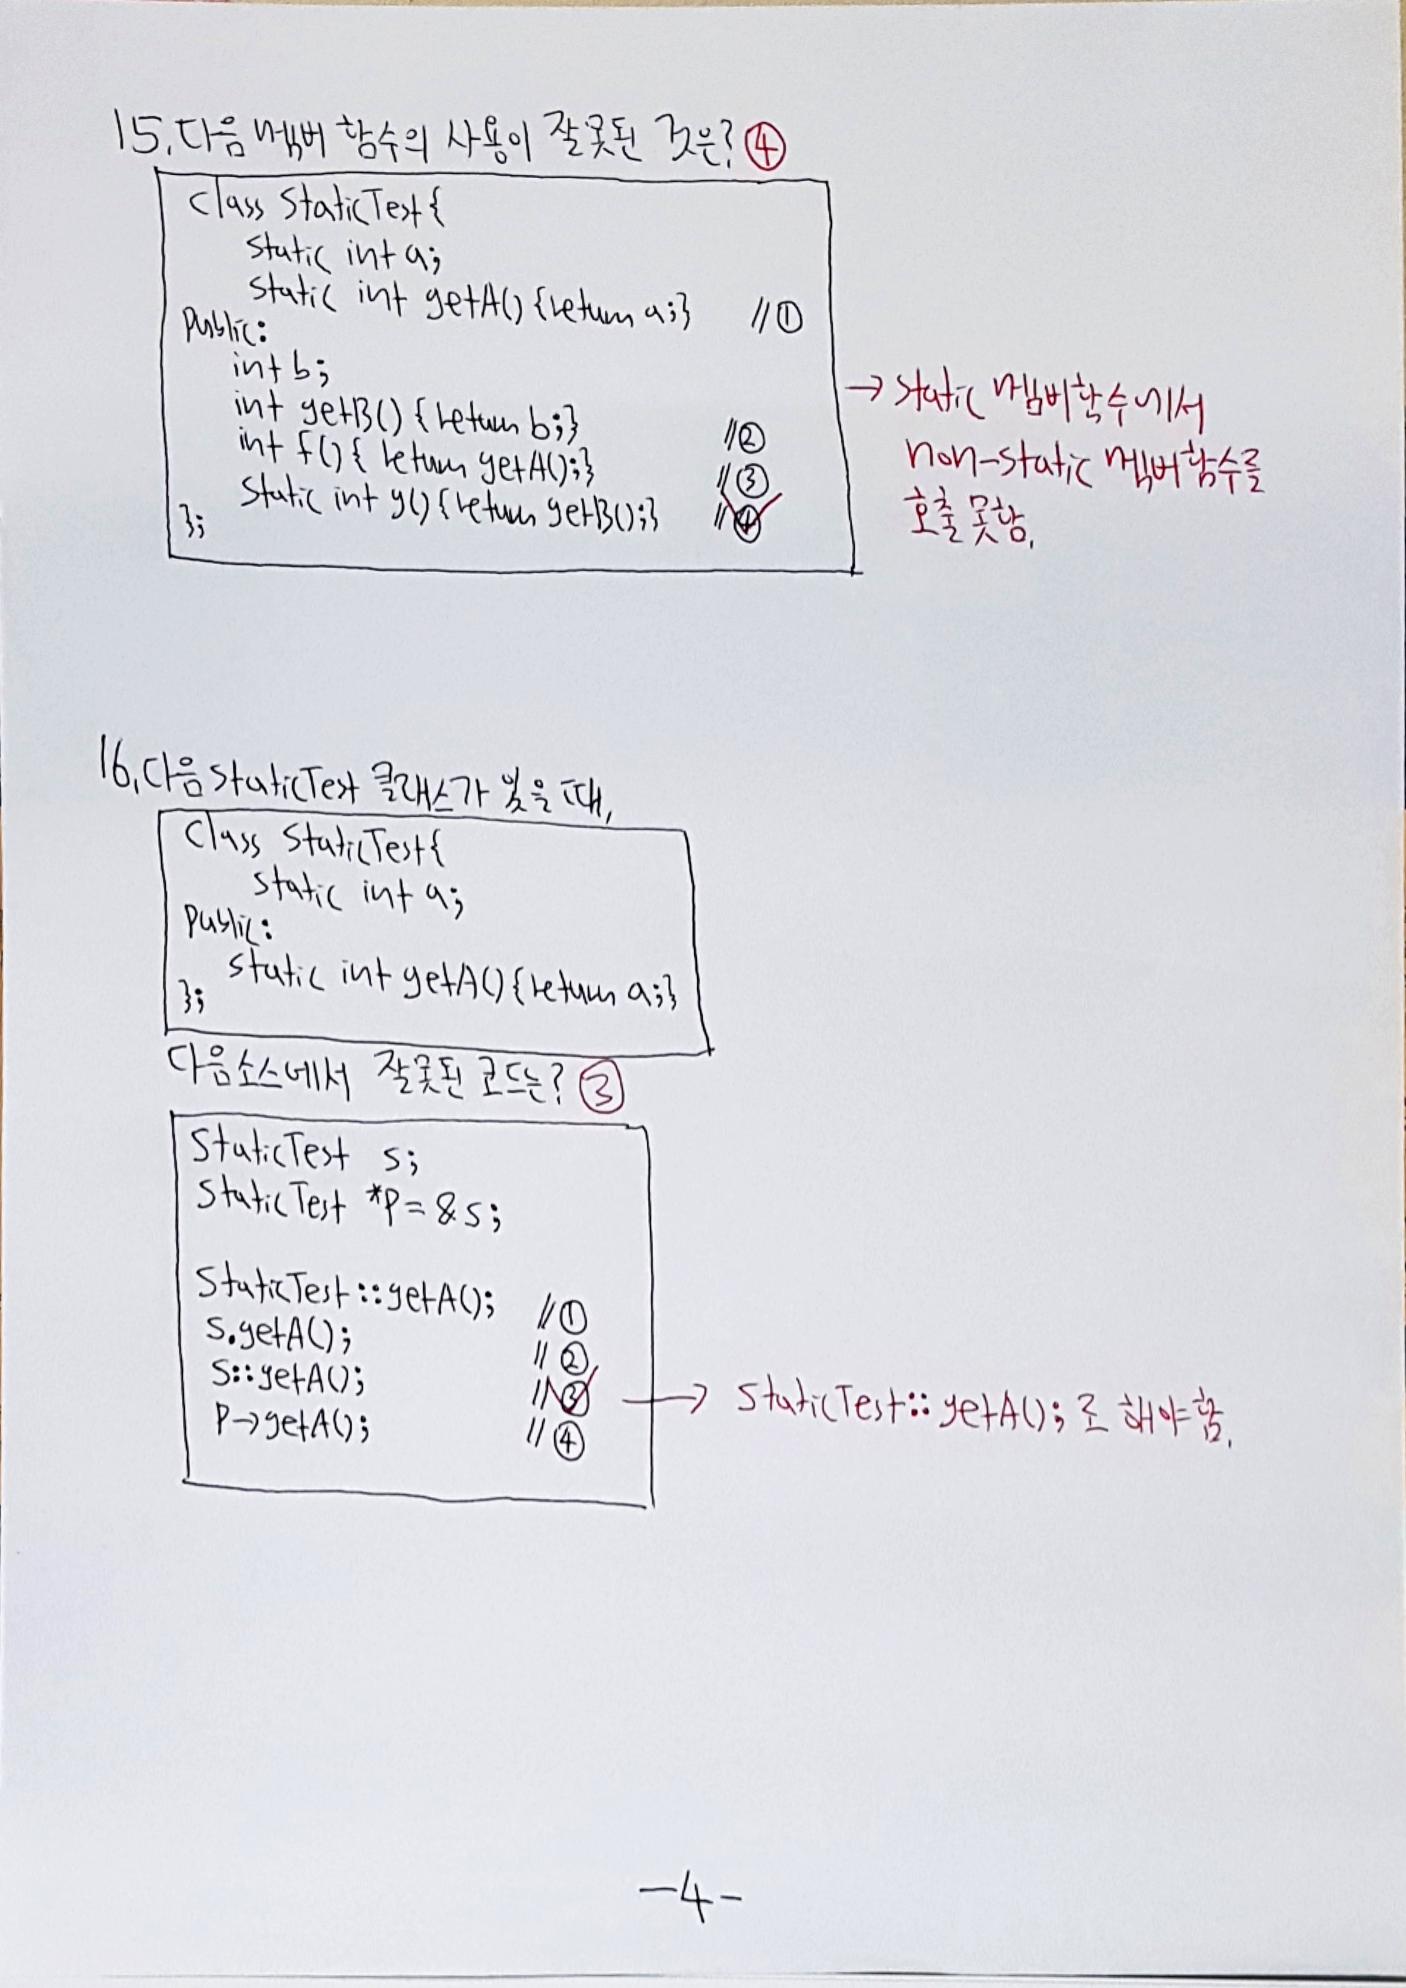 15. 다음 멤버 함수의 사용이 잘못된 것은? ④
class StaticTest{
static int a;
static int getA() {return a;} //①
public:
int b;
int getB() {return b;} //②
int f(){ return getA();} //③
static int g(){return getB();} //④
};
→ static 멤버함수에서
non-static 멤버함수를
호출 못함.
16. 다음 StaticTest 클래스가 있을 때,
class StaticTest{
static int a;
public:
static int getA(){return a;}
};
다음소스에서 잘못된 코드는? ③
StaticTest s;
StaticTest *p = &s;
StaticTest::getA(); //①
s.getA(); //②
s::getA(); //③ → StaticTest::getA(); 로 해야 함.
p->getA(); //④
-4-